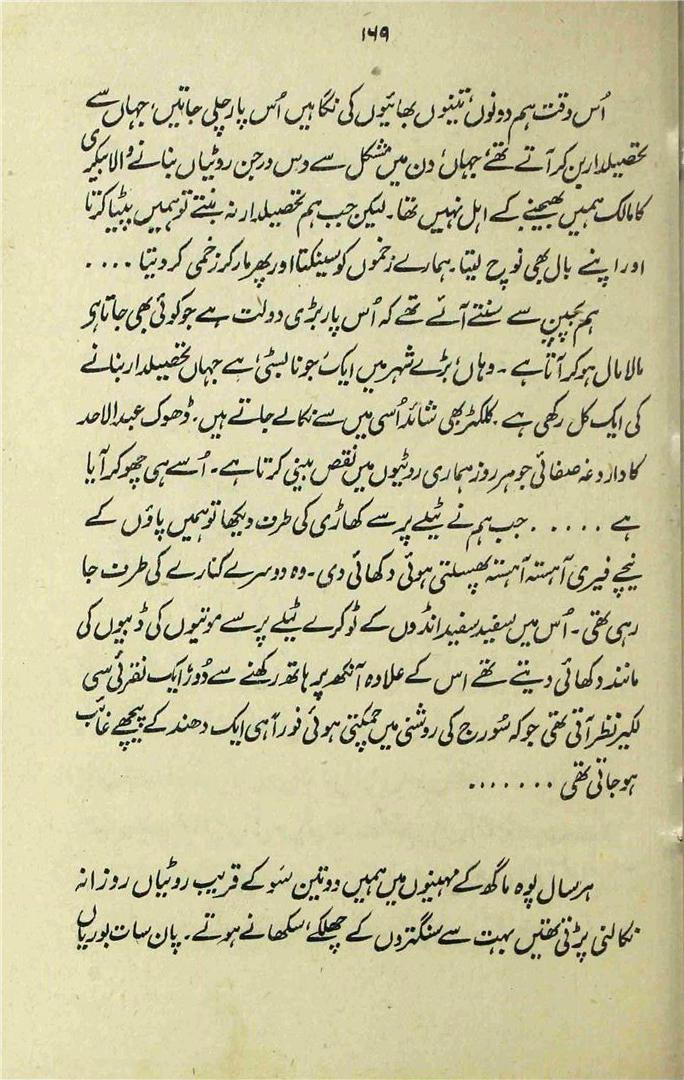 ۱۶۹
اُس وقت ہم دونوں، تینوں بھائیوں کی نگاہیں اُس پار چلی جاتیں، جہاں سے
تحصیلدار بن کر آتے تھے، جہاں، دن میں مشکل سے دس درجن روٹیاں بنانے والا بیکری
کا مالک ہمیں بھیجنے کے اہل نہیں تھا۔ لیکن جب ہم تحصیلدار نہ بنتے تو ہمیں پیٹا کرتا
اور اپنے بال بھی نوچ لیتا۔ ہمارے زخموں کو سینکتا اور پھر مار کر زخمی کر دیتا ....
ہم بچپن سے سنتے آئے تھے کہ اُس پار بڑی دولت ہے جو کوئی بھی جاتا ہے
مالا مال ہو کر آتا ہے ۔ وہاں، بڑے شہر میں ایک، جونا بستی، ہے جہاں تحصیلدار بنانے
کی ایک کل رکھی ہے ۔ کلکٹر بھی شائد اُسی میں سے نکالے جاتے ہیں ۔ ڈھوک عبدالاحد
کا داروغہ صفائی جو ہر روز ہماری روٹیوں میں نقص بینی کرتا ہے۔ اُسے ہی چھو کر آیا
ہے ..... جب ہم نے ٹیلے پر سے کھاڑی کی طرف دیکھا تو ہمیں پاؤں کے
نیچے فیری آہستہ آہستہ پھسلتی ہوئی دکھائی دی۔ وہ دوسرے کنارے کی طرف جا
رہی تھی ۔ اُس میں سفید سفید انڈوں کے ٹوکرے ٹیلے پر سے موتیوں کی ڈبیوں کی
مانند دکھائی دیتے تھے اس کے علاوہ آنکھ پر ہاتھ رکھنے سے دُور ایک نقرئی سی
لکیر نظر آتی تھی جو کہ سُورج کی روشنی میں چمکتی ہوئی فوراً ہی ایک دھند کے پیچھے غائب
ہو جاتی تھی .......
ہر سال پوہ ماگھ کے مہینوں میں ہمیں دو تین سَو کے قریب روٹیاں روزانہ
نکالنی پڑتی تھیں بہت سے سنگتروں کے چھلکے، سکھانے ہوتے ۔ پان سات بوریاں